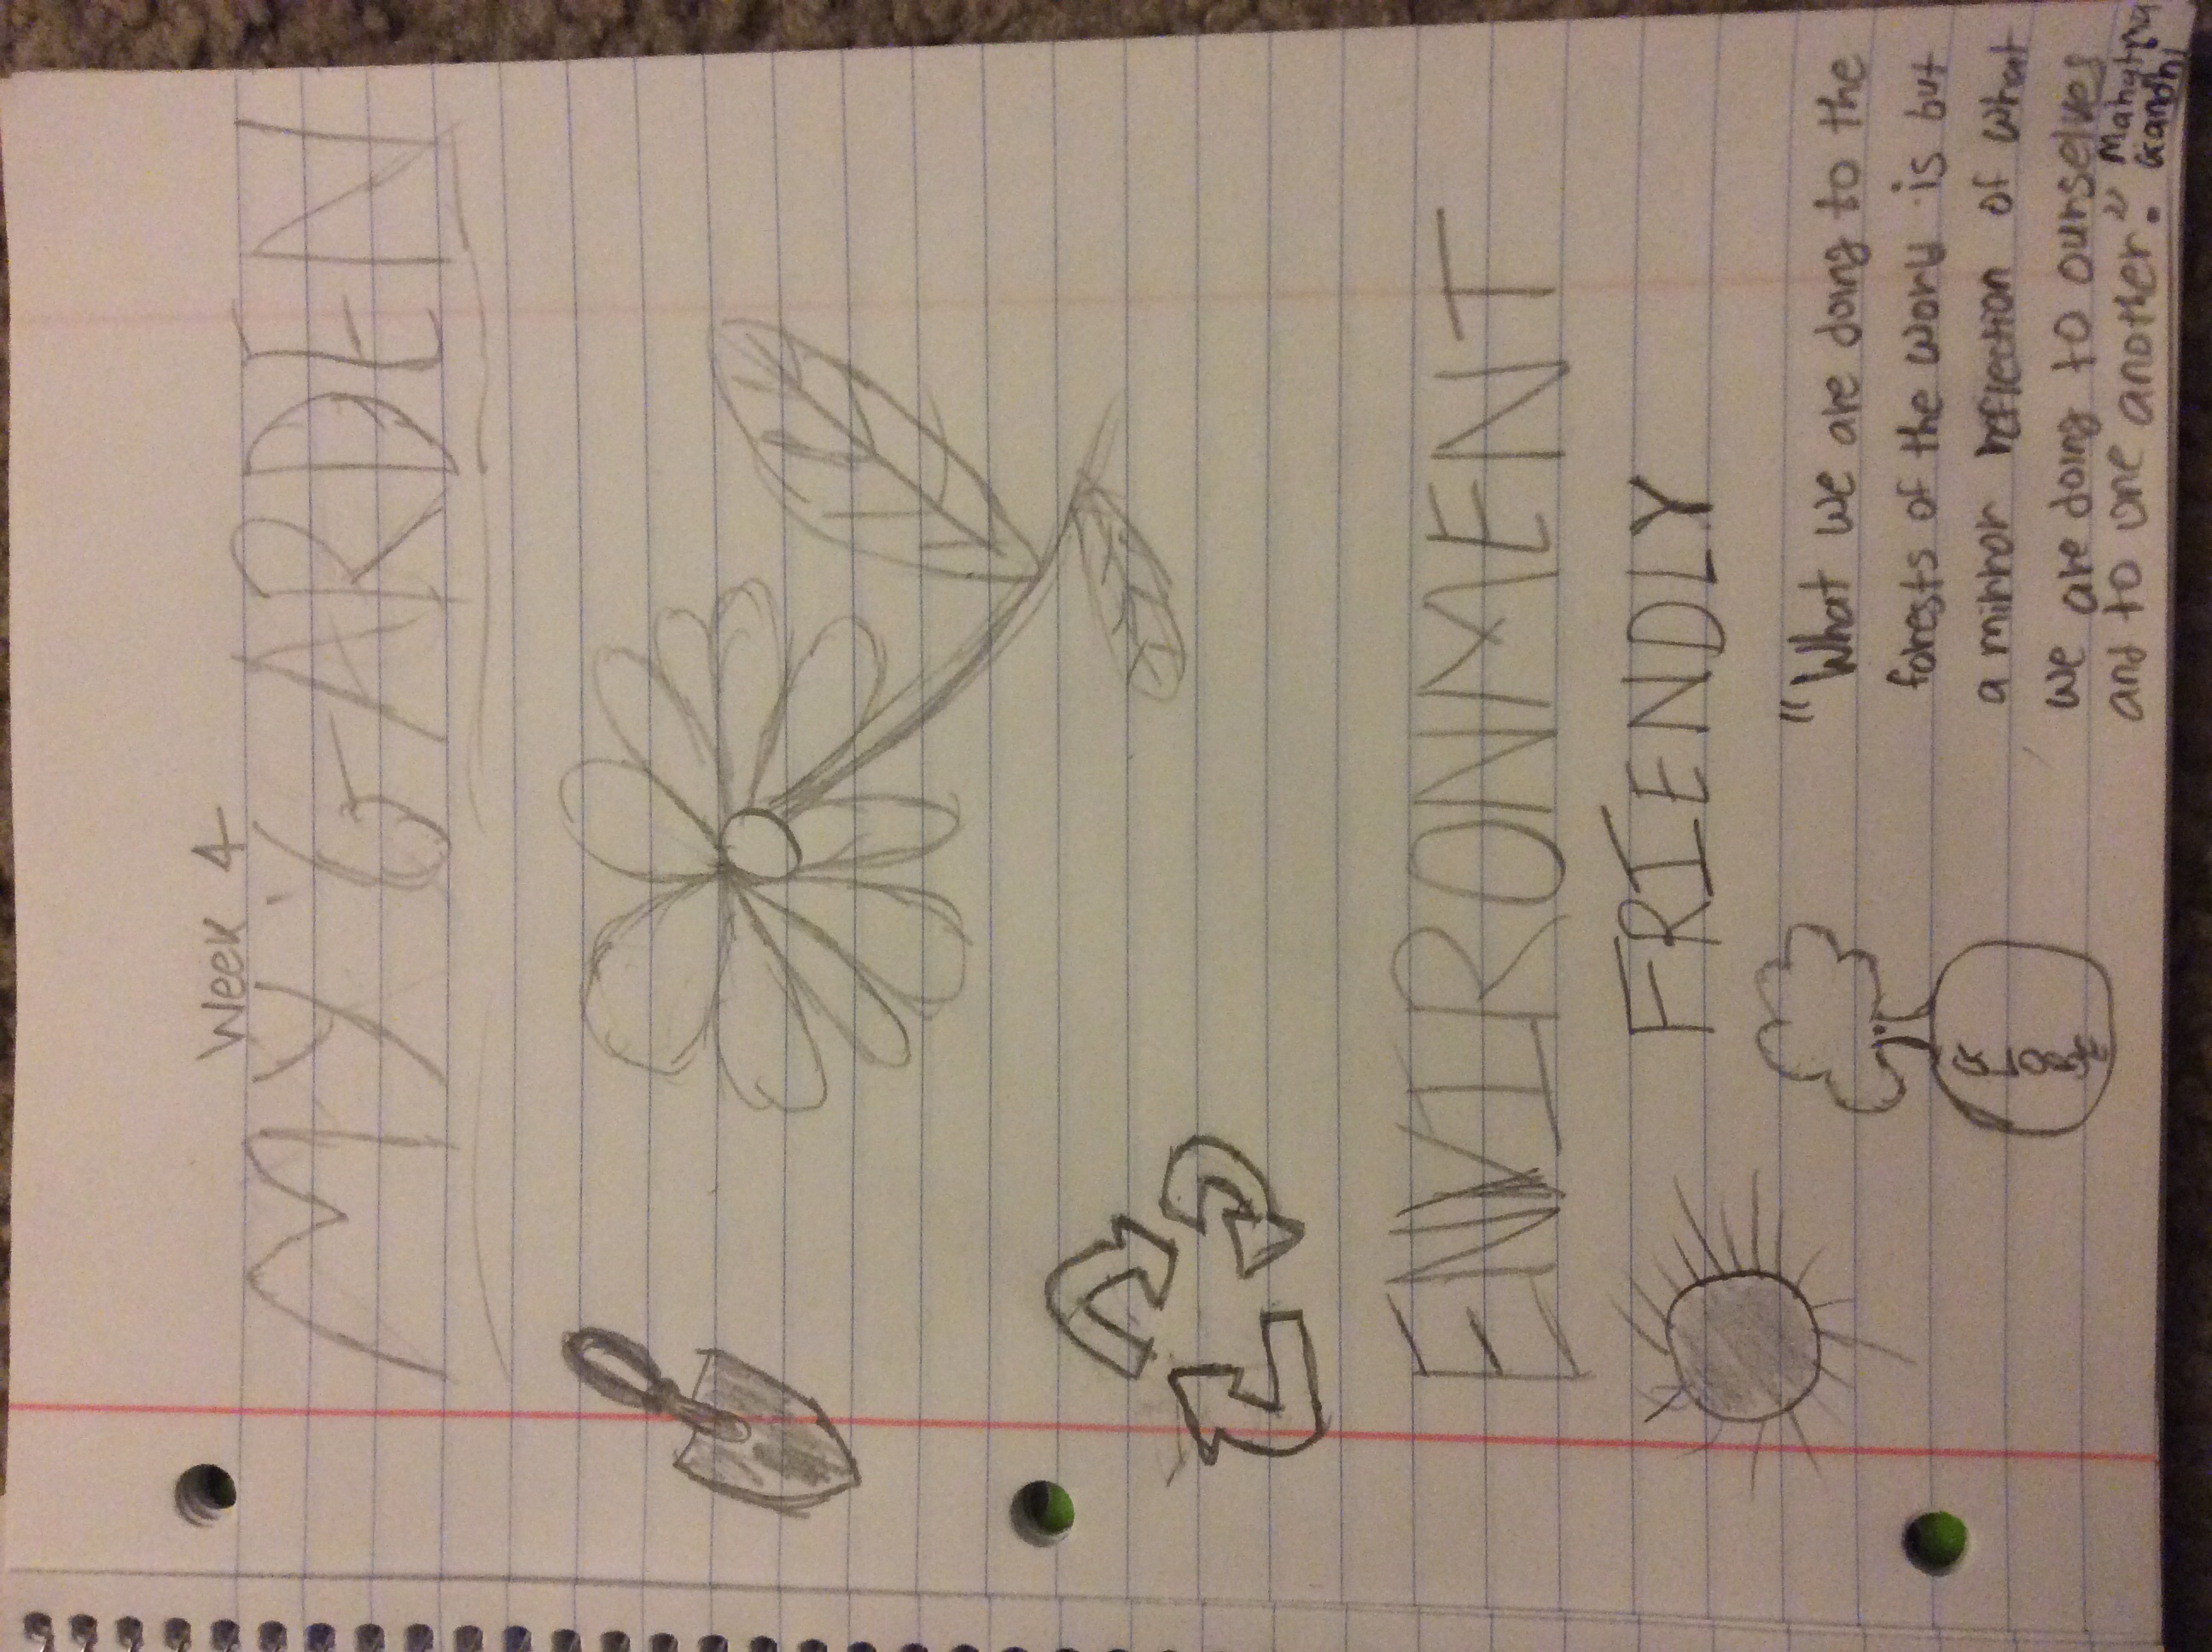 Week 4
MY GARDEN
ENVIRONMENT
FRIENDLY
"What we are doing to the
forests of the world is but
a mirror reflection of what
we are doing to ourselves
and to one another."
Mahatma
Gandhi